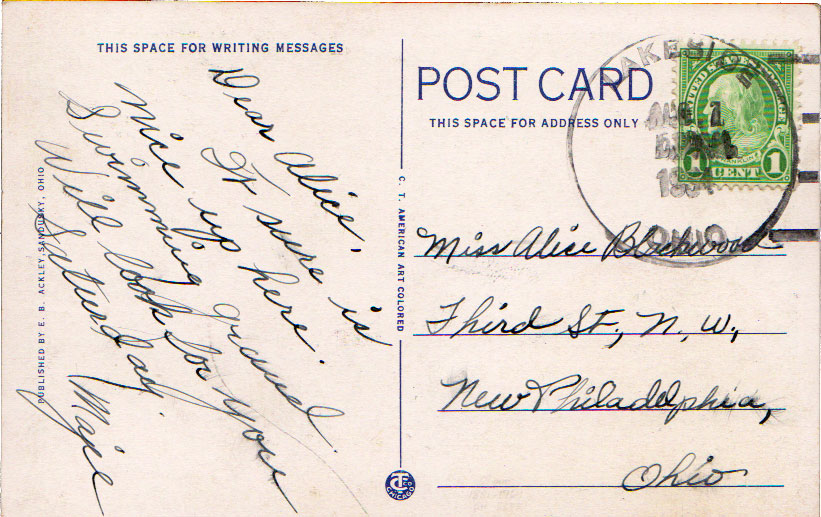 THIS SPACE FOR WRITING MESSAGES
Dear Alice,
It sure is
nice up here.
Swimming
Will look for you
Saturday.
Marge
PUBLISHED BY E. B. ACKLEY, SANDUSKY, OHIO
C. T. AMERICAN ART COLORED
CHICAGO
POST CARD
THIS SPACE FOR ADDRESS ONLY
LAKESIDE
OHIO
UNITED STATES POSTAGE
1 CENT 1
Miss Alice Blackwood
Third St., N. W.,
New Philadelphia,
Ohio